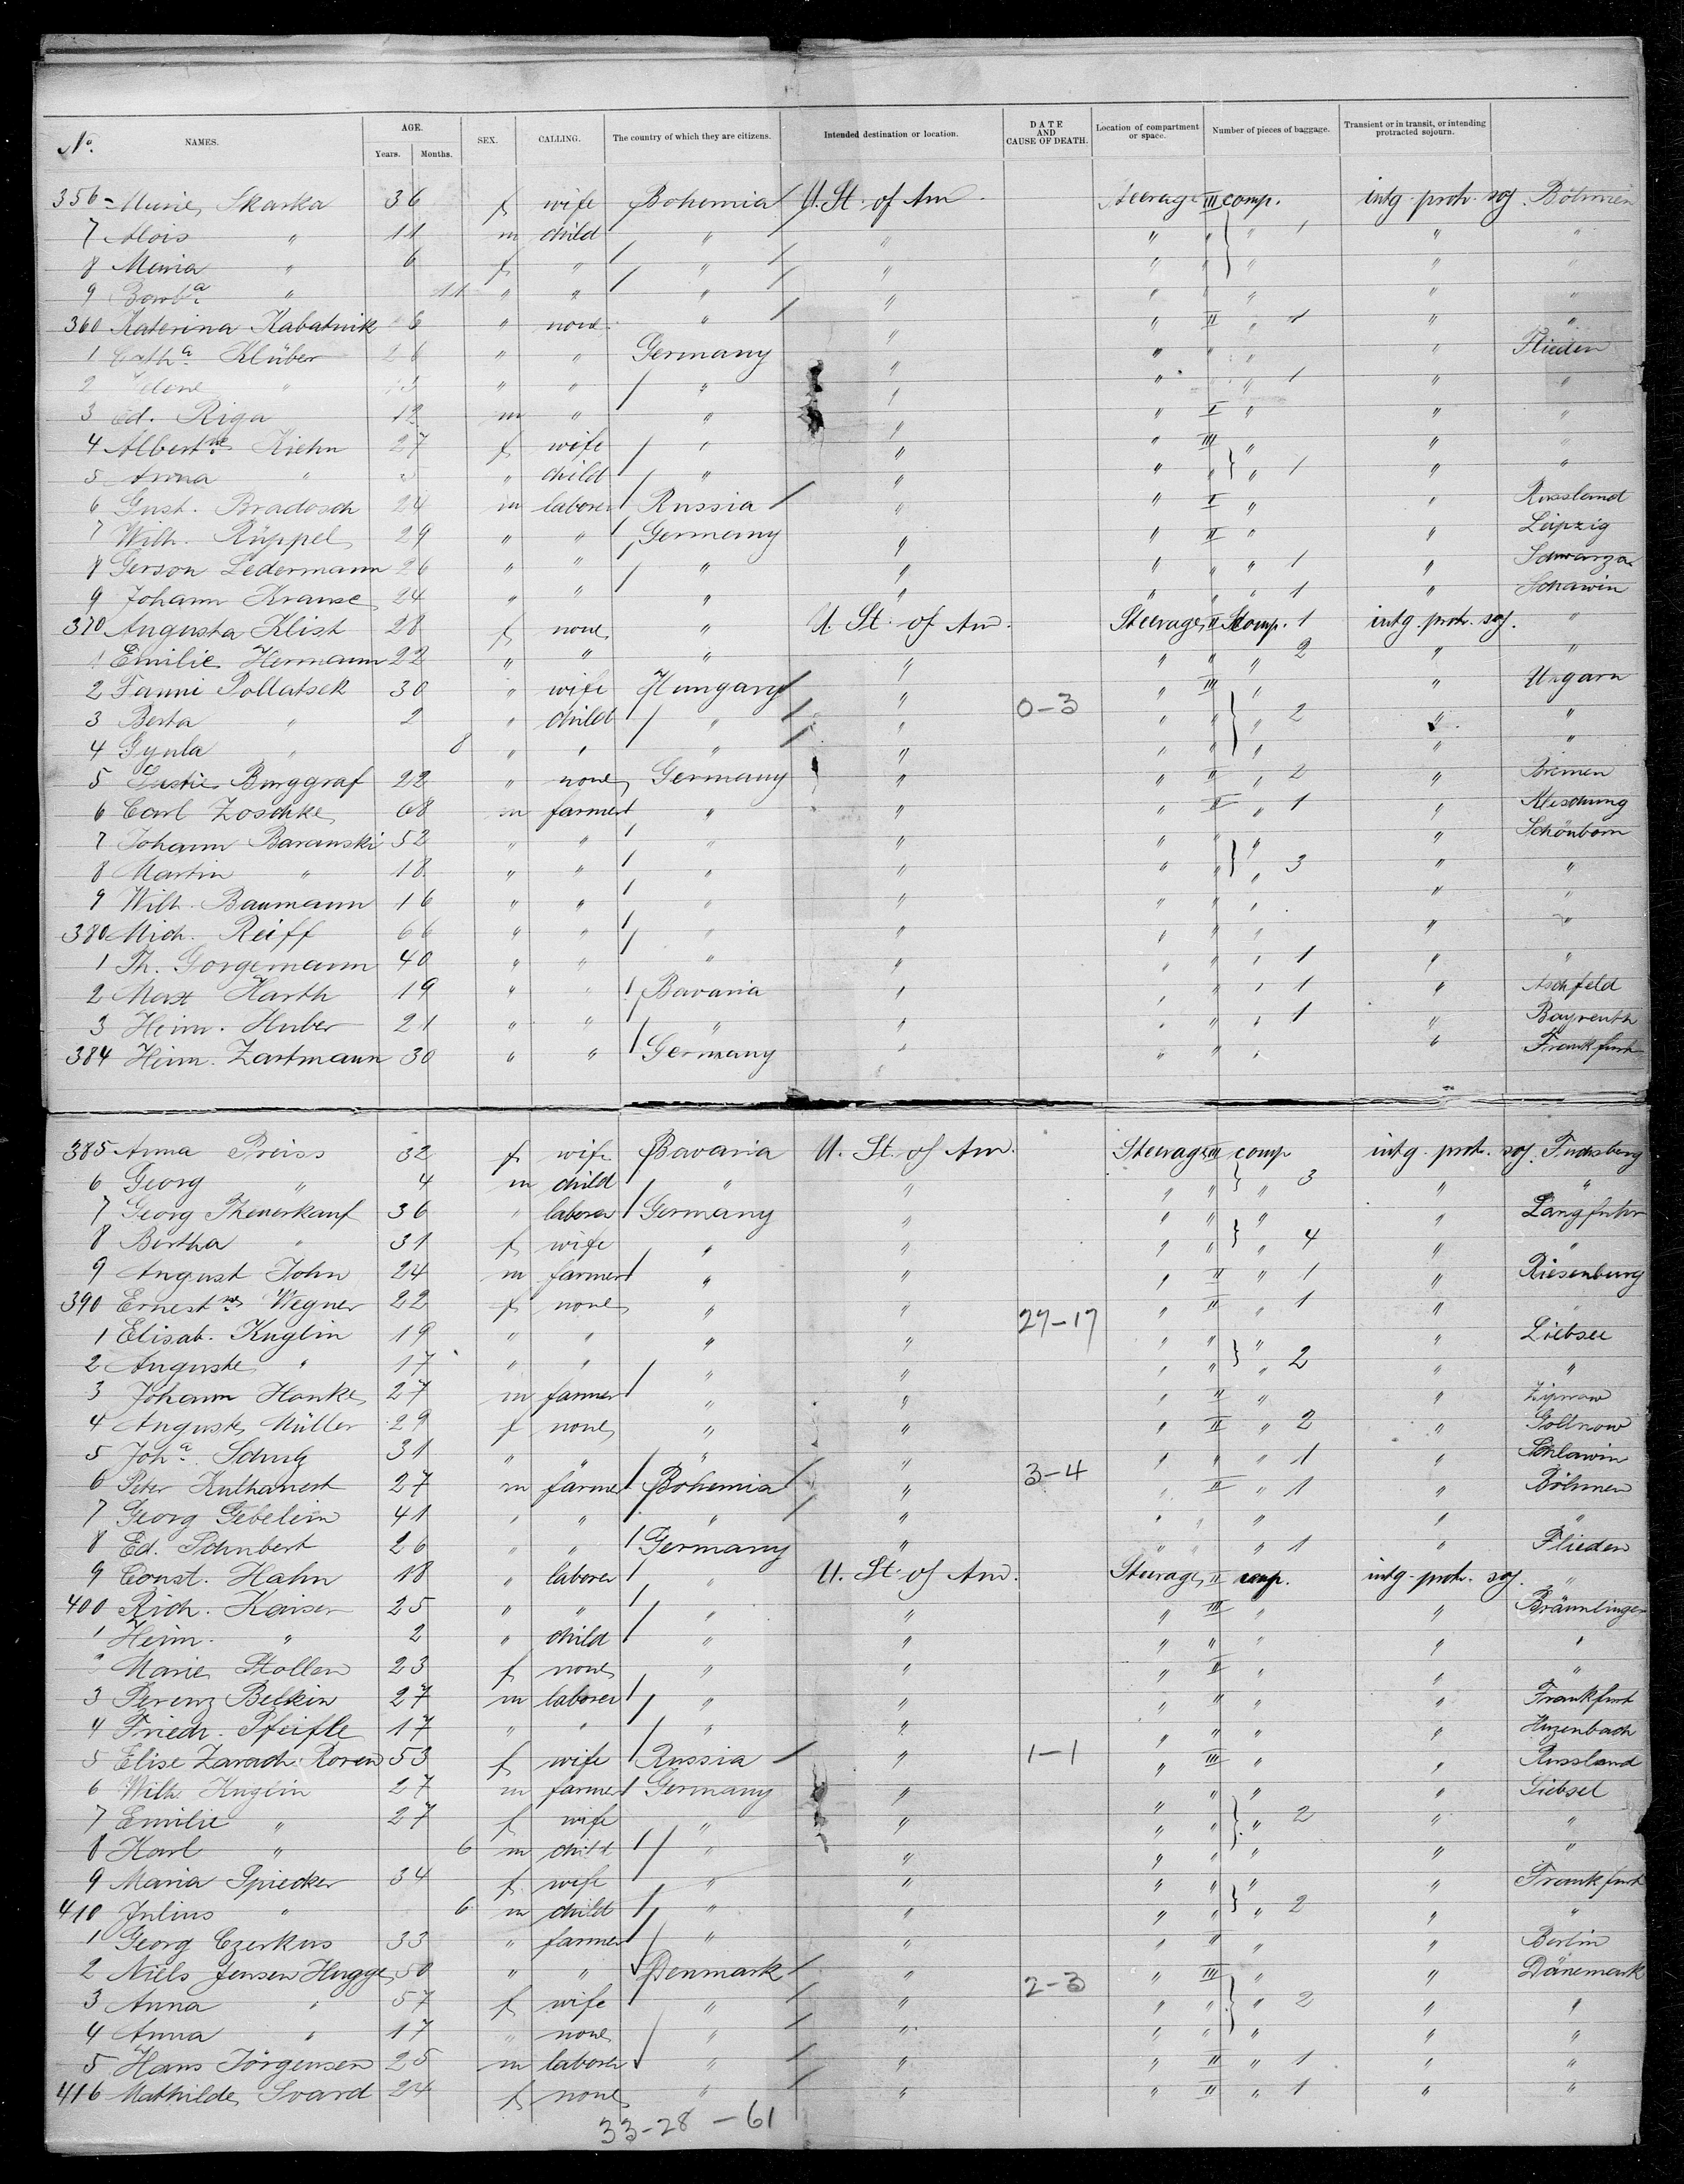 No. NAMES. AGE. Years. Months. SEX. CALLING. The country of which they are citizens. Intended destination or location. DATE AND CAUSE OF DEATH. Location of compartment or space. Number of pieces of baggage. Transient or in transit, or intending protracted sojourn.
356 - Marie Skarka 36 f wife Bohemia / U. St. of Am. Steerage III comp. intg. protr. soj. Böhmen
7 Alois " 11 m child " / " " " } " 1 " "
8 Maria " 6 f " / " / " " " } " " "
9 Barb.a " 11 " " / " / " " " " " "
360 Katerina Kabatnik 6 " none " / " " II " 1 " "
1 Cath.a Klüber 26 " " Germany " " " " " Flieden
2 " " " / " " " " 1 " "
3 Ed. Riga 12 m " " " " I " " "
4 Albert.ne Kiehn 27 f wife / " " " III " " "
5 Anna " " child / " " " " } " 1 " "
6 Gust. Bradosch 24 m laborer / Russia / " " I " " Russland
7 Wilh. Rüppel 29 " " / Germany " " II " " Leipzig
8 Gerson Ledermann 26 " " / " " " " " 1 " Schwarza
9 Johann Krause 24 " " " " " " " 1 " Schawin
370 Augusta Klist 28 f none " U. St. of Am. Steerage II comp. 1 intg. protr. soj. "
1 Emilie Hermann 22 " " " " " " " 2 " "
2 Fanni Pollatsek 30 " wife Hungary / " 0-3 " III " " Ungarn
3 Berta " 2 " child / " / " " " } " 2 " "
4 Gyula " 8 " " " / " " " " " "
5 Gustie Burggraf 22 " none Germany " " II " 2 " Bremen
6 Carl Zoschke 68 m farmer / " " " II " 1 " Kleschung
7 Johann Baranski 52 " " / " " " " } " " Schönborn
8 Martin " 18 " " / " " " " " 3 " "
9 Wilh. Baumann 16 " " / " " " " " " "
380 Mich. Reiff 66 " " / " " " " " " "
1 Th. Gorgemann 40 " " / " " " " " 1 " "
2 Max Harth 19 " " / Bavaria " " " " 1 " Aschfeld
3 Heinr. Huber 21 " " / " " " " " 1 " Bayreuth
384 Heinr. Zartmann 30 " " / Germany " " " " " Frankfurt
385 Anna Preiss 32 f wife Bavaria U. St. of Am. Steerage III comp intg. protr. soj. Fuchsberg
6 Georg " 4 m child / " " " " } " 3 " "
7 Georg Theuerkauf 36 " laborer / Germany " " " " " Langfuhr
8 Bertha " 31 f wife " " " " } " 4 " "
9 August John 24 m farmer / " " " II " 1 " Riesenburg
390 Ernest.ne Wegner 22 f none " " 27-17 " II " 1 " "
1 Elisab. Kuglin 19 " " " " " " " " Liebsee
2 Auguste " 17 " " / " " " " } " 2 " "
3 Johann Hanke 27 m farmer / " " " II " " Zipnow
4 Auguste Müller 29 f none " " " II " 2 " Gollnow
5 Joh.a Schulz 31 " " / " " " " " 1 " Schlawin
6 Peter Kulhanert 27 m farmer / Bohemia / " 3-4 " II " 1 " Böhmen
7 Georg Gebelein 41 " " " / " " " " " "
8 Ed. Schubert 26 " " / Germany " " " " 1 " Flieden
9 Const. Hahn 18 " laborer / " U. St. of Am. Steerage II comp. intg. protr. soj. "
400 Rich. Kaiser 25 " " / " " " III " " Bräunlingen
1 Heinr. " 2 " child / " " " " " " "
2 Marie Stollen 23 f none " " " II " " "
3 Ferenz Belkin 27 m laborer / " " " " " " Frankfurt
4 Friedr. Pfeifle 17 " " / " " " " " " Huzenbach
5 Elise Zarach Roren 53 f wife / Russia / " 1-1 " III " " Russland
6 Wilh. Kuglin 27 m farmer / Germany " " " " " Giebsel
7 Emilie " 27 f wife " " " " } " 2 " "
8 Karl " 6 m child / " " " " " " "
9 Maria Spiecker 34 f wife " " " " " " Frankfurt
410 Julius " 6 m child / " " " " } " 2 " "
1 Georg Czerkus 33 " farmer / " " " II " " Berlin
2 Niels Jensen Hugge 50 " " Denmark / " 2-3 " III " " Dänemark
3 Anna " 57 f wife " / " " " } " 2 " "
4 Anna " 17 " none / " / " " " " " "
5 Hans Jörgensen 25 m laborer " / " " III " 1 " "
416 Mathilde Svard 24 f none " / " " II " 1 " "
33-28-61